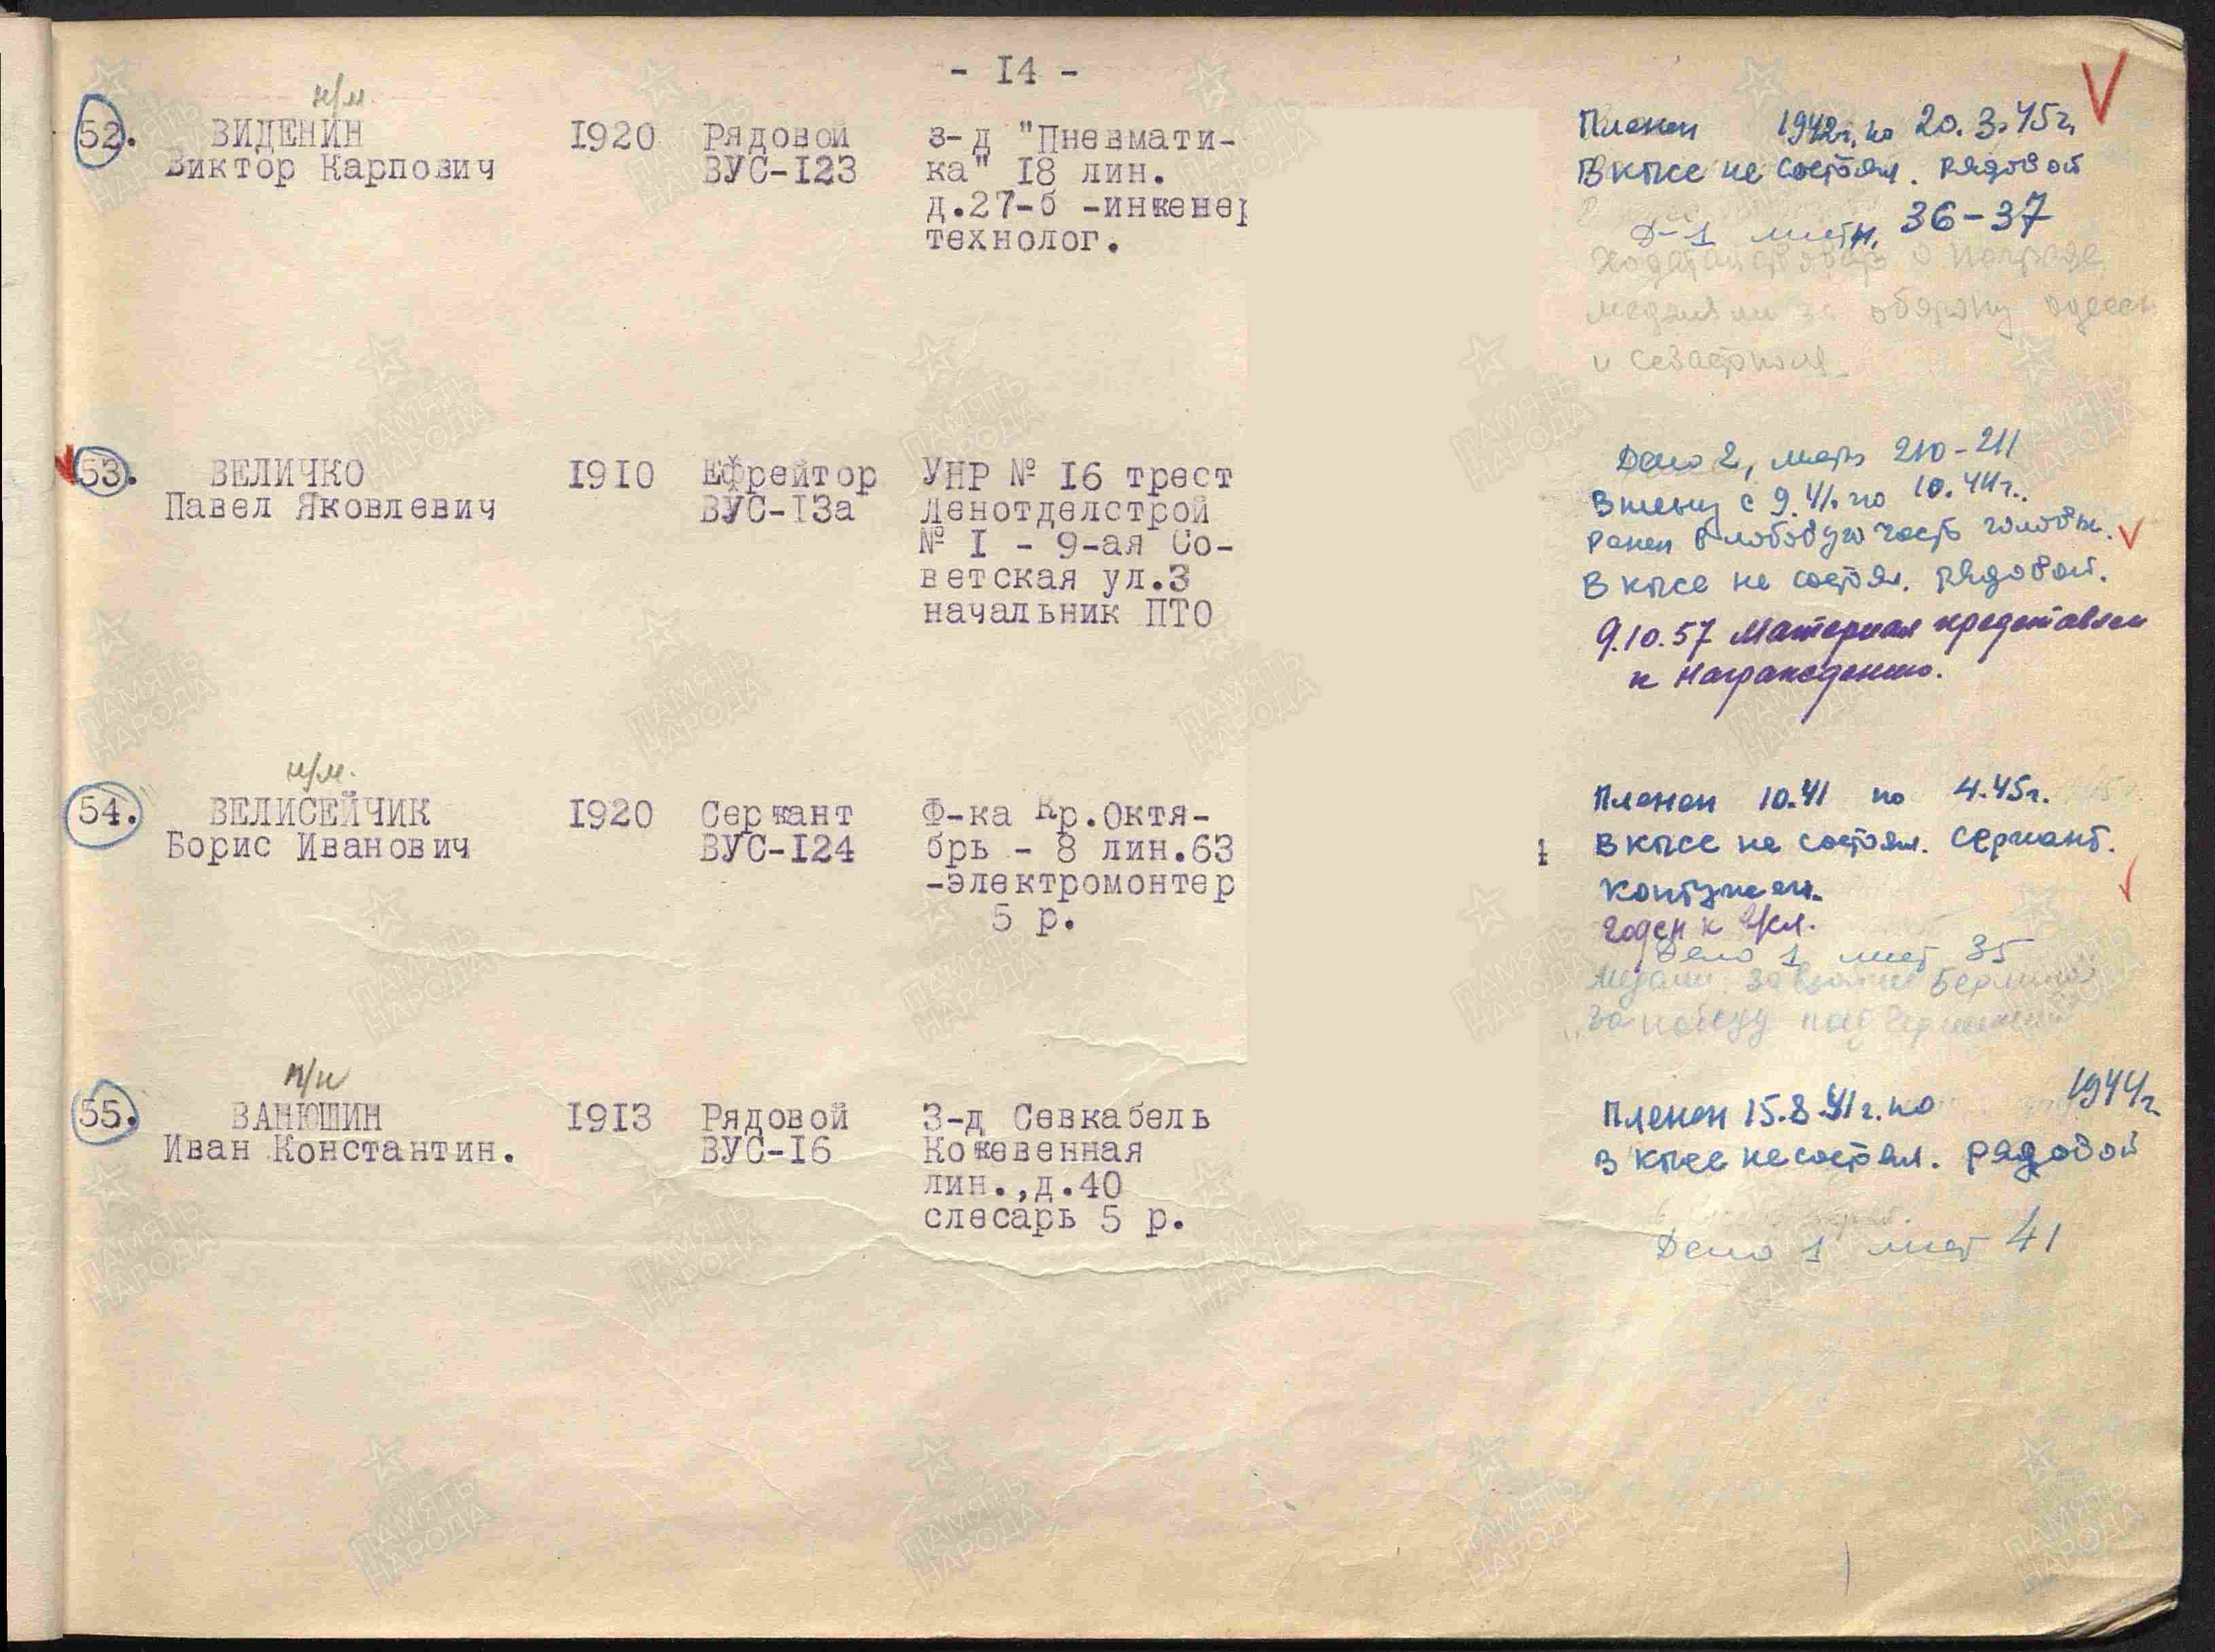 - I4 -
н/м.
52. ВИДЕНИН 1920 Рядовой з-д "Пневмати-
Виктор Карпович ВУС-I23 ка" I8 лин.
д.27-б -инженер
технолог.
Пленен 1942г. по 20.3.45г.
В кпсс не состоял. рядовой
Д-1 листы 36-37
Ходатайствовать о награде
медалями за оборону Одессы
и Севастополя.
53. ВЕЛИЧКО I9I0 Ефрейтор УНР № I6 трест
Павел Яковлевич ВУС-I3а Ленотделстрой
№ I - 9-ая Со-
ветская ул.3
начальник ПТО
Дело 2, листы 210-211
В плену с 9.41 по 10.44г..
Ранен в лобовую часть головы.
В кпсс не состоял. рядовой.
9.10.57 Материал представлен
к награждению.
н/м.
54. ВЕЛИСЕЙЧИК I920 Сержант Ф-ка Кр.Октя-
Борис Иванович ВУС-I24 брь - 8 лин.63
-электромонтер
5 р.
Пленен 10.41 по 4.45г.
В кпсс не состоял. Сержант.
контужен.
годен к
Дело 1 лист 35
Медали. За взятие Берлина
"За победу над Германией"
п/н
55. ВАНЮШИН I9I3 Рядовой З-д Севкабель
Иван Константин. ВУС-I6 Кожевенная
лин.,д.40
слесарь 5 р.
Пленен 15.8.41г. по 1944г.
В кпсс не состоял. рядовой
Дело 1 лист 41
ПАМЯТЬ НАРОДА